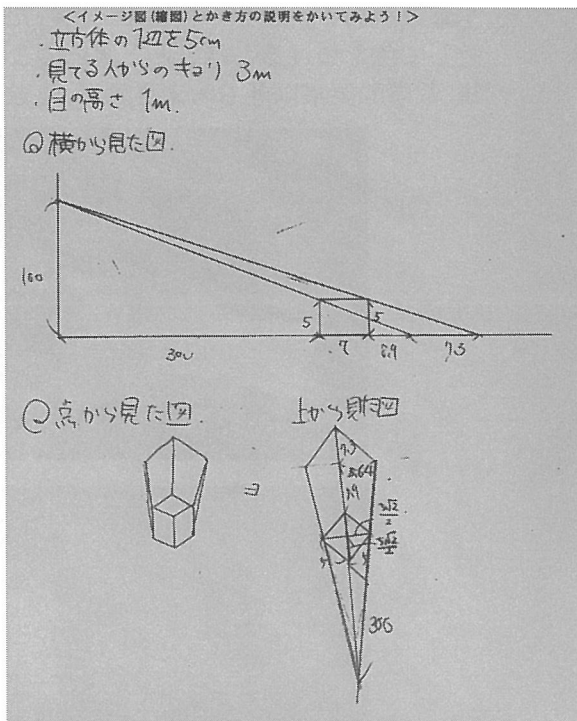 <イメージ図(縮図)とかき方の説明をかいてみよう!>
・立方体の1辺を5cm
・見てる人からのキョリ 3m
・目の高さ 1m.
横から見た図.
100
5
5
300
7
8.9
7.3
点から見た図.
上から見た図
7.3
5.64
300